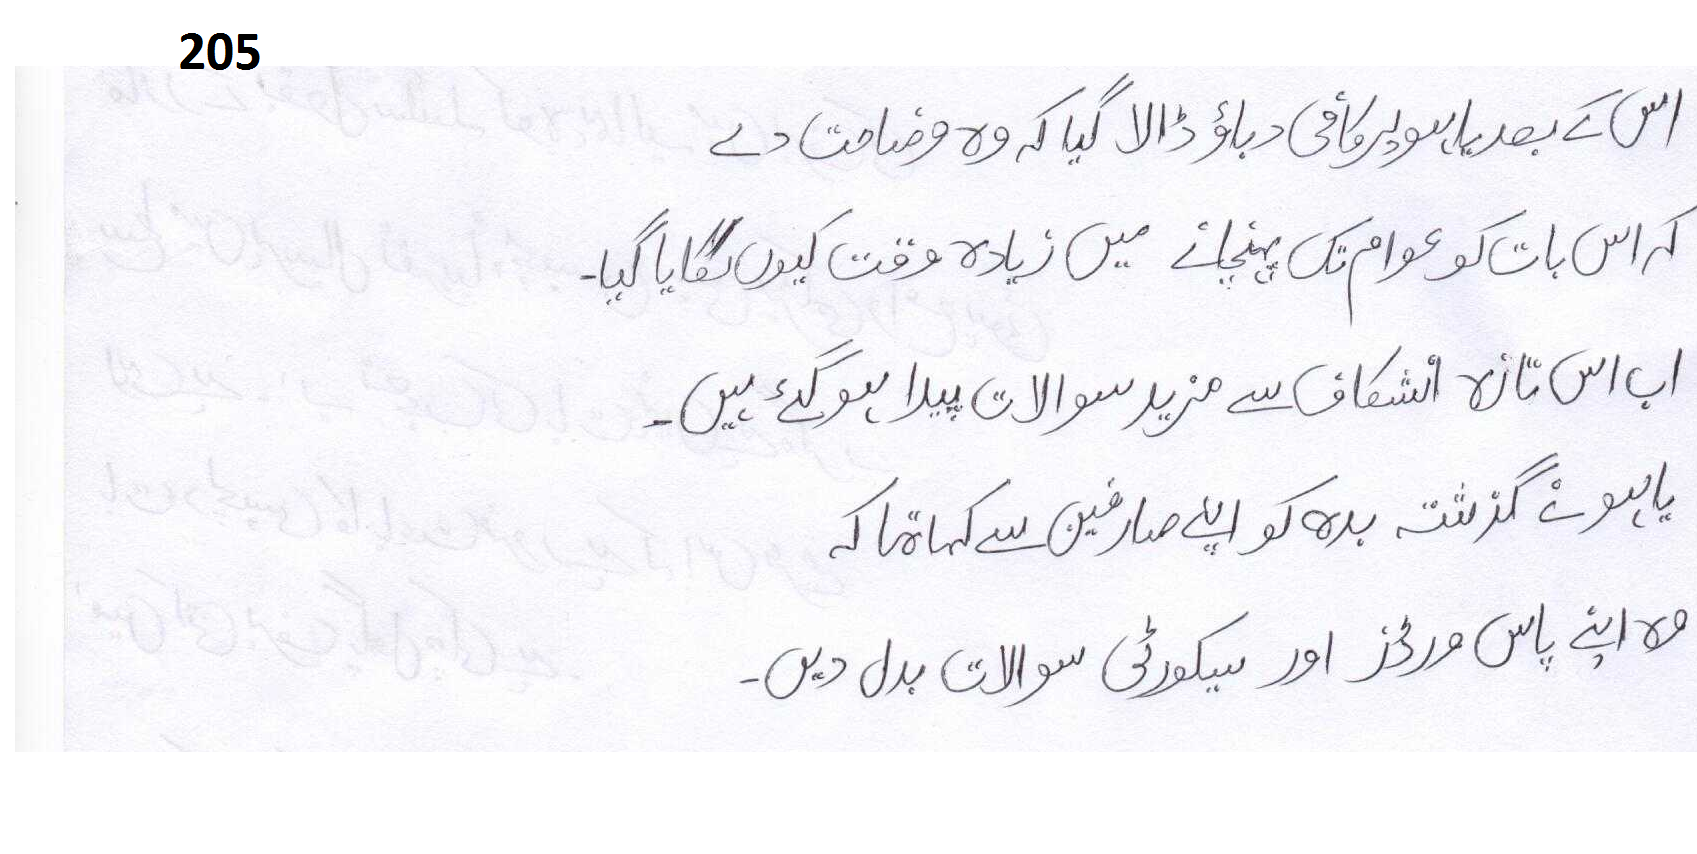 205
اس کے بعد یاہو پر کافی دباؤ ڈالا گیا کہ وہ وضاحت دے
کہ اس بات کو عوام تک پہنچانے میں زیادہ وقت کیوں لگایا گیا۔
اب اس تازہ انشکاف سے مزید سوالات پیدا ہو گئے ہیں۔
یاہو نے گذشتہ بدہ کو اپنے صارفین سے کہا تھا کہ
وہ اپنے پاس ورڈز اور سیکورٹی سوالات بدل دیں۔